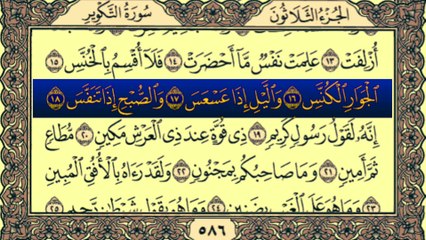 الجزء الثلاثون
سورة التكوير
أُزْلِفَتْ ١٣ عَلِمَتْ نَفْسٌ مَّآ أَحْضَرَتْ ١٤ فَلَآ أُقْسِمُ بِٱلْخُنَّسِ ١٥
ٱلْجَوَارِ ٱلْكُنَّسِ ١٦ وَٱلَّيْلِ إِذَا عَسْعَسَ ١٧ وَٱلصُّبْحِ إِذَا تَنَفَّسَ ١٨
إِنَّهُۥ لَقَوْلُ رَسُولٍ كَرِيمٍ ١٩ ذِى قُوَّةٍ عِندَ ذِى ٱلْعَرْشِ مَكِينٍ ٢٠ مُّطَاعٍ
ثَمَّ أَمِينٍ ٢١ وَمَا صَاحِبُكُم بِمَجْنُونٍ ٢٢ وَلَقَدْ رَءَاهُ بِٱلْأُفُقِ ٱلْمُبِينِ
٢٣ وَمَا هُوَ عَلَى ٱلْغَيْبِ بِضَنِينٍ ٢٤ وَمَا هُوَ بِقَوْلِ شَيْطَٰنٍ رَّجِيمٍ ٢٥
٥٨٦